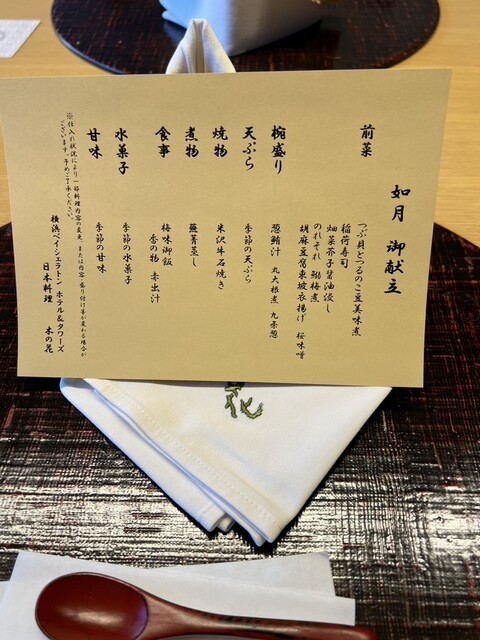 如月 御献立
前菜
つぶ貝とつるのこ豆美味煮
稲荷寿司
畑菜芥子醤油浸し
のれそれ 鰯梅煮
胡麻豆腐東坡衣揚げ 桜味噌
椀盛り
葱鮪汁 丸大根煮 九条葱
天ぷら
季節の天ぷら
焼物
米沢牛石焼き
煮物
蕪菁蒸し
食事
梅味御飯
香の物 赤出汁
水菓子
季節の水菓子
甘味
季節の甘味
※仕入れ状況により一部料理内容の変更、または内容・盛り付け等が変わる場合が
ございます。予めご了承ください。
横浜ベイシェラトン ホテル&タワーズ
日本料理 木の花
花